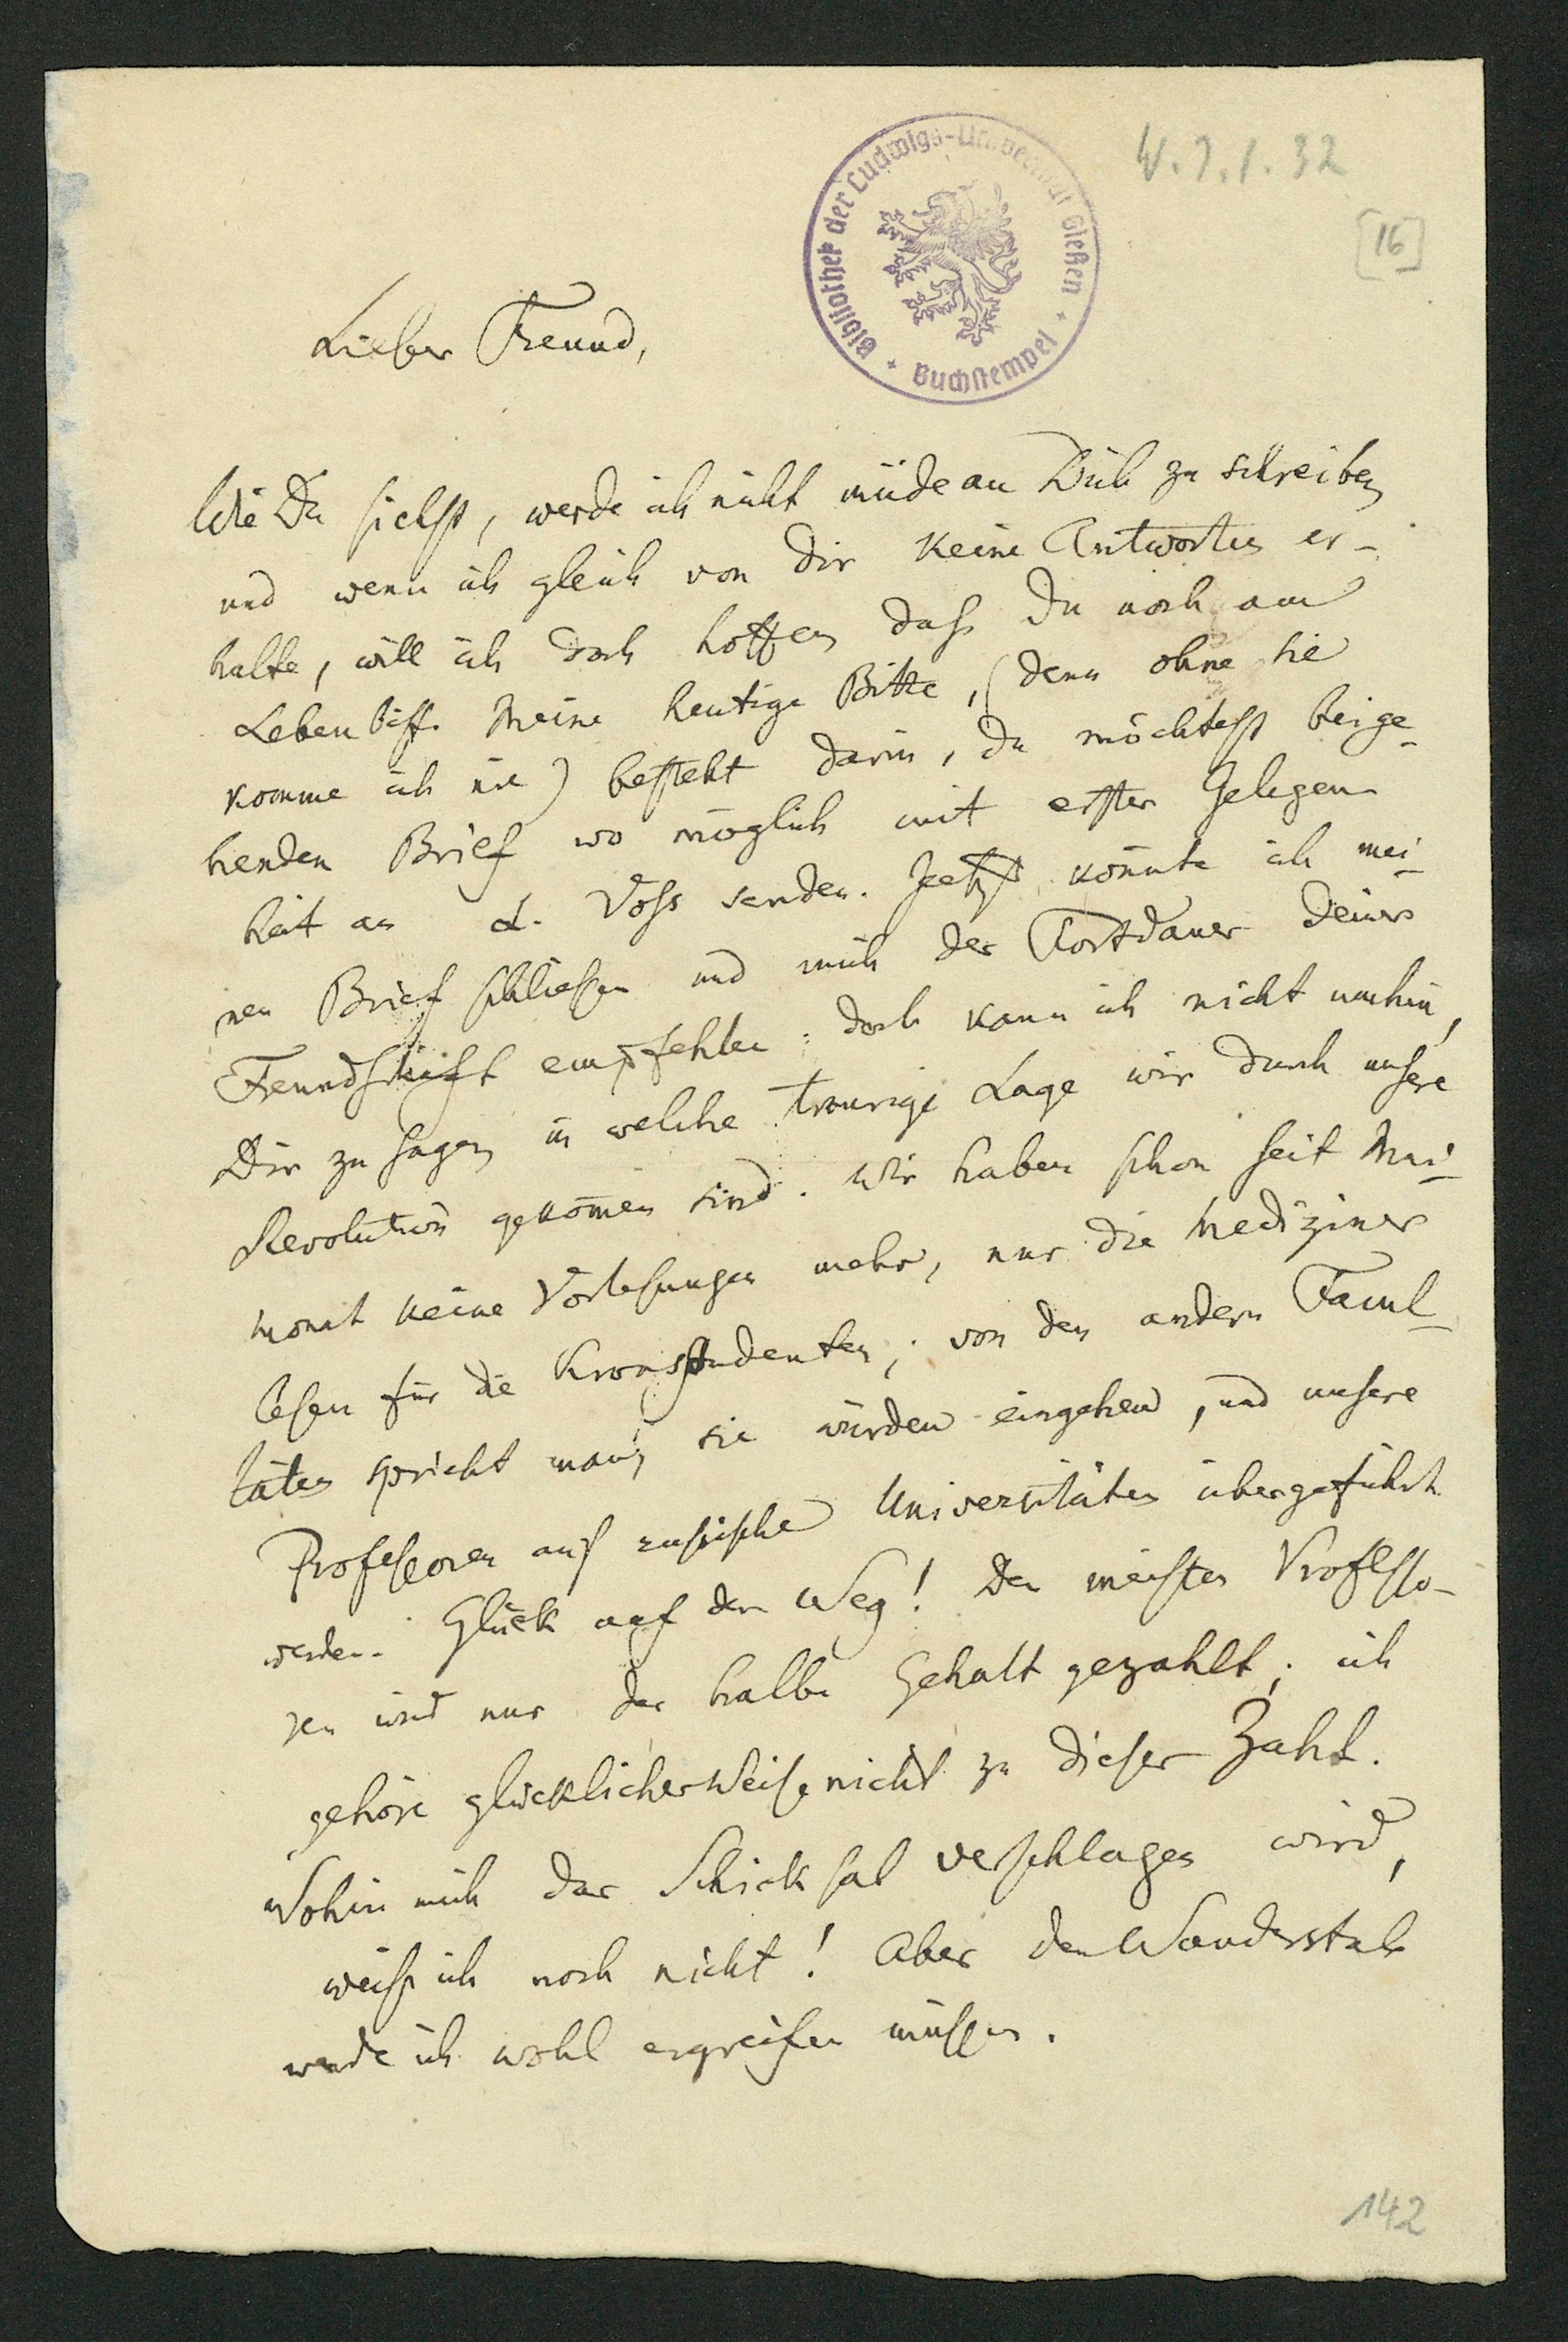 W. 7.1.32
[16]
Bibliothek der Ludwigs-Universität Gießen + Buchstempel +
Lieber Freund,
Wie Du siehst, werde ich nicht müde an Dich zu schreiben
und wenn ich gleich von Dir keine Antworten er-
halte, will ich doch hoffen daß Du noch am
Leben bist. Meine heutige Bitte, (denn ohne sie
komme ich nie) besteht darin, Du möchtest beige-
henden Brief wo möglich mit erster Gelegen-
heit an L. Voss senden. Jetzt könnte ich mei-
nen Brief schließen und mich der Fortdauer Deiner
Freundschaft empfehlen; doch kann ich nicht umhin,
Dir zu sagen in welche traurige Lage wir durch unsere
Revolution gekom̄en sind. Wir haben schon seit Mai-
monat keine Vorlesungen mehr, nur die Mediziner
lesen für die Kronsstudenten; von den andern Facul-
täten spricht man, sie würden eingehen, und unsere
Professoren auf russische Universitäten übergeführt
werden. Glück auf den Weg! Den meisten Professo-
ren wird nur der halbe Gehalt gezahlt; ich
gehöre glücklicher Weise nicht zu dieser Zahl.
Wohin mich das Schicksal verschlagen wird,
weiß ich noch nicht! Aber den Wanderstab
werde ich wohl ergreifen müssen.
142